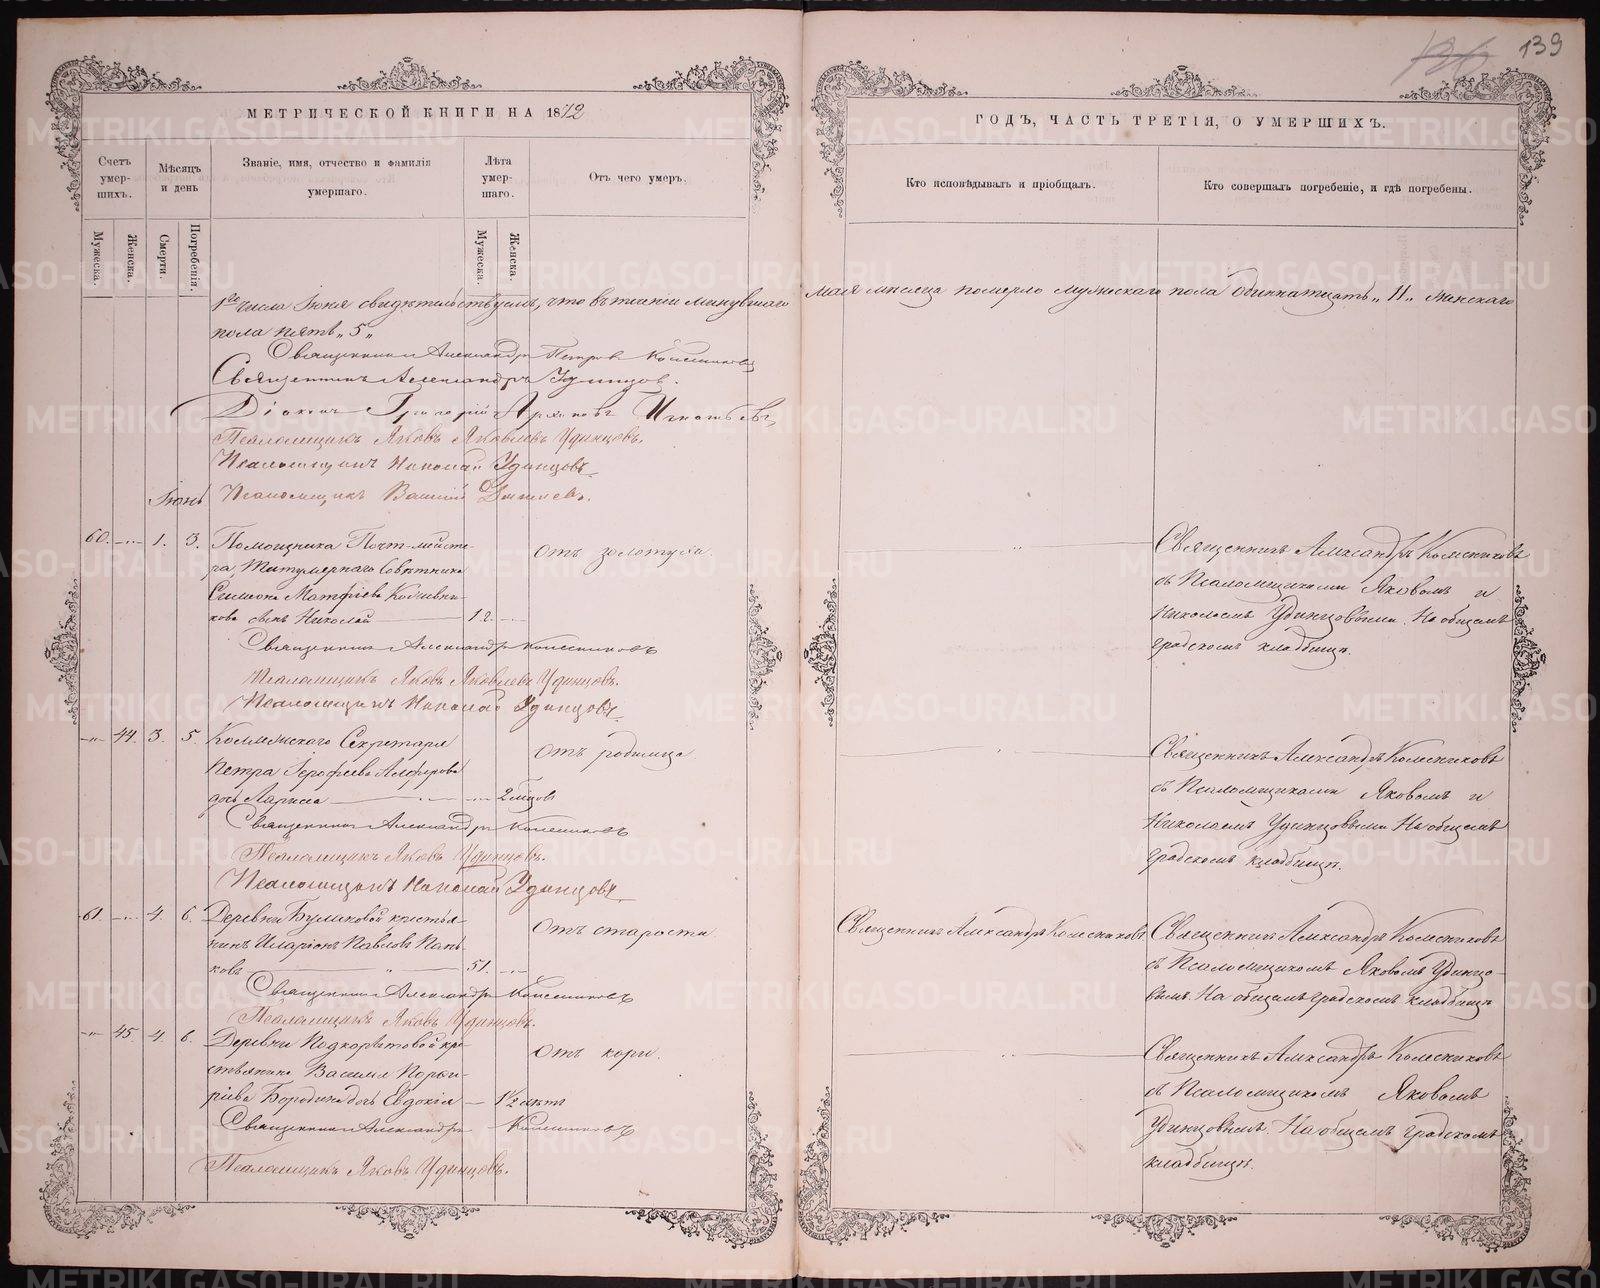 139
МЕТРИЧЕСКОЙ КНИГИ НА 1872
ГОДЪ, ЧАСТЬ ТРЕТІЯ, О УМЕРШИХЪ.
Счетъ умер-шихъ.
Мѣсяцъ и день
Званіе, имя, отчество и фамилія умершаго.
Лѣта умер-шаго.
Отъ чего умеръ.
Кто исповѣдывалъ и пріобщалъ.
Кто совершалъ погребеніе, и гдѣ погребены.
Мужеска.
Женска.
Смерти.
Погребенія.
Мужеска.
Женска.
1го числа Іюня свидѣтельствуемъ, что въ теченіи минувшаго мая мѣсяца померло мужескаго пола одиннатцать „11„ женскаго
пола пять „5„
Священникъ Александръ Петровъ Колесниковъ
Священникъ Александръ Удинцов.
Діаконъ Григорій Архиповъ Игнатьевъ
Псаломщикъ Яковъ Яковлевъ Удинцовъ.
Псаломщикъ Николай Удинцовъ
Іюнь
Псаломщикъ Василій
60. 1. 3.
Помощника Почт-мейсте-
ра, Титулярнаго Совѣтника
Симеона Матфіева
кова сынъ Николай
12.
Отъ золотухи.
Священникъ Александръ Колесниковъ
съ Псаломщиками Яковомъ и
Николаемъ Удинцовыми. На общемъ
градскомъ кладбищѣ.
Священникъ Александръ Колесниковъ
Псаломщикъ Яковъ Яковлевъ Удинцовъ.
Псаломщикъ Николай Удинцовъ
44. 3. 5.
Коллежскаго Секретаря
Петра Іерофеева Алферова
дочь Лариса
2 мѣсяцовъ
Отъ родимца
Священникъ Александръ Колесниковъ
съ Псаломщиками Яковомъ и
Николаемъ Удинцовыми На общемъ
градскомъ кладбищѣ.
Священникъ Александръ Колесниковъ
Псаломщикъ Яковъ Удинцовъ.
Псаломщикъ Николай Удинцовъ
61. 4. 6.
Деревни крестья-
нинъ Иларіонъ Павловъ Пань-
ковъ
51.
Отъ старости
Священникъ Александръ Колесниковъ
Священникъ Александръ Колесниковъ
съ Псаломщикомъ Яковомъ Удинцо-
вымъ. На общемъ градскомъ кладбищѣ
Священникъ Александръ Колесниковъ
Псаломщикъ Яковъ Удинцовъ.
45. 4. 6.
Деревни Подкорытовой кре-
стьянина Василія Порфи-
ріева Бородина дочь Евдокія
1 1/2 лѣтъ
Отъ кори.
Священникъ Александръ Колесниковъ
съ Псаломщикомъ Яковомъ
Удинцовымъ. На общемъ градскомъ
кладбищѣ.
Священникъ Александръ Колесниковъ
Псаломщикъ Яковъ Удинцовъ.
METRIKI.GASO-URAL.RU